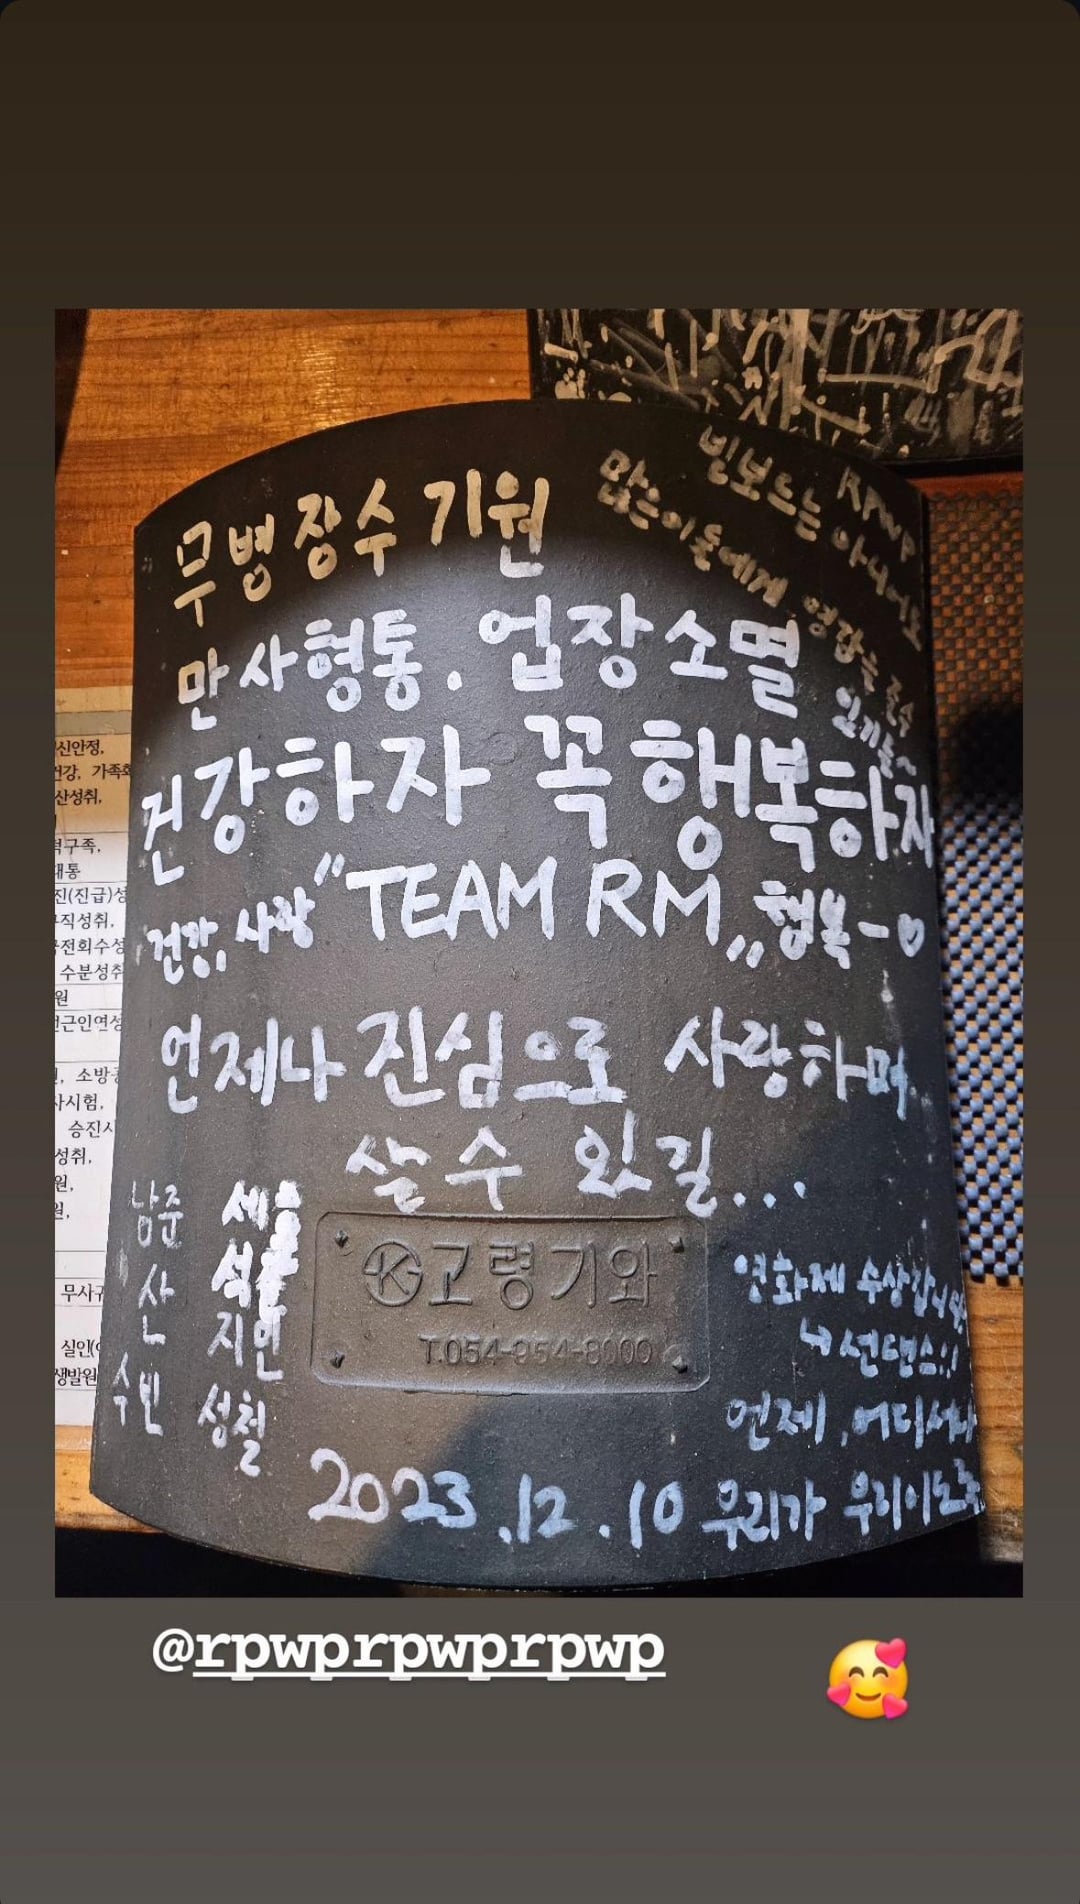 무병장수 기원
RPWP
빌보드는 아니어도
많은이들에게 영감을 준
만사형통. 업장소멸
건강하자 꼭 행복하자
건강, 사랑 "TEAM RM" 행복-♡
언제나 진심으로 사랑하며
살 수 있길...
남준
산
수빈
세
지인
성철
고령기와
T.054-954-8000
영화제 수상갑니다
↳ 선댄스!!
언제, 어디서나
우리가 우리이도록
2023.12.10
신안정,
건강, 가족
산성취,
구족,
대통
진(진급)성
직성취,
전회수성
수분성취
원
근인연성
소방
시험,
승진시
성취,
원,
무사귀
실인(
생발원
@rpwprpwprpwp
🥰